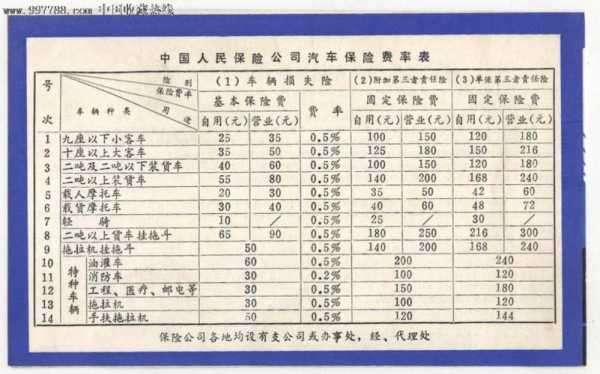 www.997788.com 中国收藏热线
中国人民保险公司汽车保险费率表
号次 险别 保险费率 用途 车辆种类 (1)车辆损失险 (2)附加第三者责任险 (3)单保第三者责任险
基本保险费 费率 固定保险费 固定保险费
自用(元) 营业(元) 自用(元) 营业(元) 自用(元) 营业(元)
1 九座以下小客车 25 35 0.5% 100 150 120 180
2 十座以上大客车 35 50 0.5% 125 180 150 216
3 二吨及二吨以下装货车 40 60 0.5% 100 150 120 180
4 二吨以上装货车 55 80 0.5% 140 200 168 240
5 载人摩托车 20 30 0.5% 35 50 42 60
6 载货摩托车 30 40 0.5% 40 60 48 72
7 轻骑 10 / 0.5% 25 / 30 /
8 二吨以上货车挂拖斗 65 90 0.5% 180 250 216 300
9 拖拉机挂拖斗 50 0.5% 140 200 168 240
特种车辆
10 油灌车 60 0.5% 200 240
11 消防车 30 0.2% 100 120
12 工程、医疗、邮电等 30 0.5% 150 180
13 拖拉机 30 0.5% 100 120
14 手扶拖拉机 50 0.5% 120 144
保险公司各地均设有支公司或办事处,经、代理处